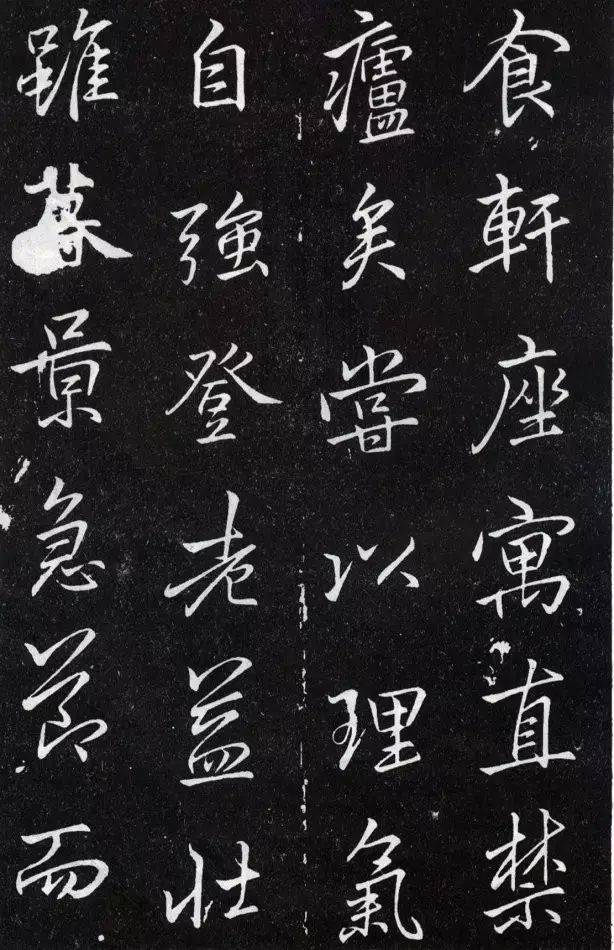 食軒座寓直禁
廬矣嘗以理氣
自強登老益壯
雖暮景急節而